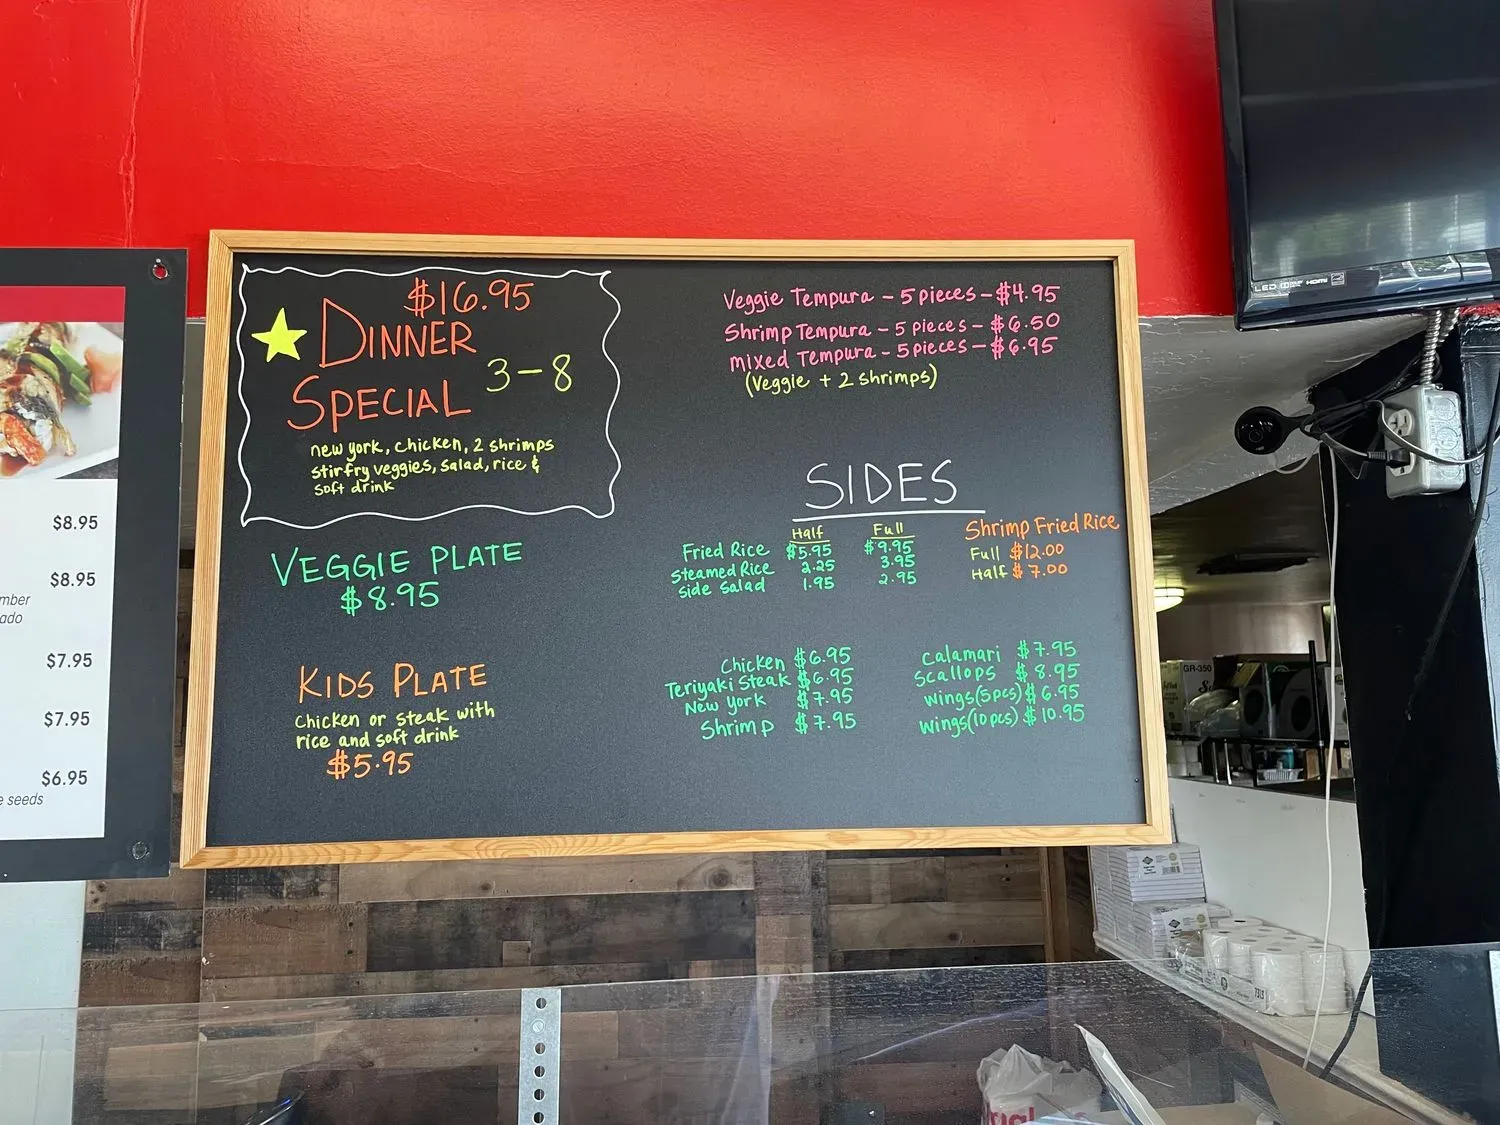 $16.95
DINNER
SPECIAL 3-8
new york, chicken, 2 shrimps
stirfry veggies, salad, rice &
soft drink
VEGGIE PLATE
$8.95
KIDS PLATE
chicken or steak with
rice and soft drink
$5.95
Veggie Tempura - 5 pieces - $4.95
Shrimp Tempura - 5 pieces - $6.50
mixed Tempura - 5 pieces - $6.95
(veggie + 2 shrimps)
SIDES
Half Full
Fried Rice $5.95 $9.95
Steamed Rice 2.25 3.95
Side Salad 1.95 2.95
Shrimp Fried Rice
Full $12.00
Half $7.00
Chicken $6.95
Teriyaki Steak $6.95
New York $7.95
Shrimp $7.95
calamari $7.95
scallops $8.95
wings(5pcs) $6.95
wings(10pcs) $10.95
$8.95
$8.95
$7.95
$7.95
$6.95
seeds
LED
HDMI
GR-350